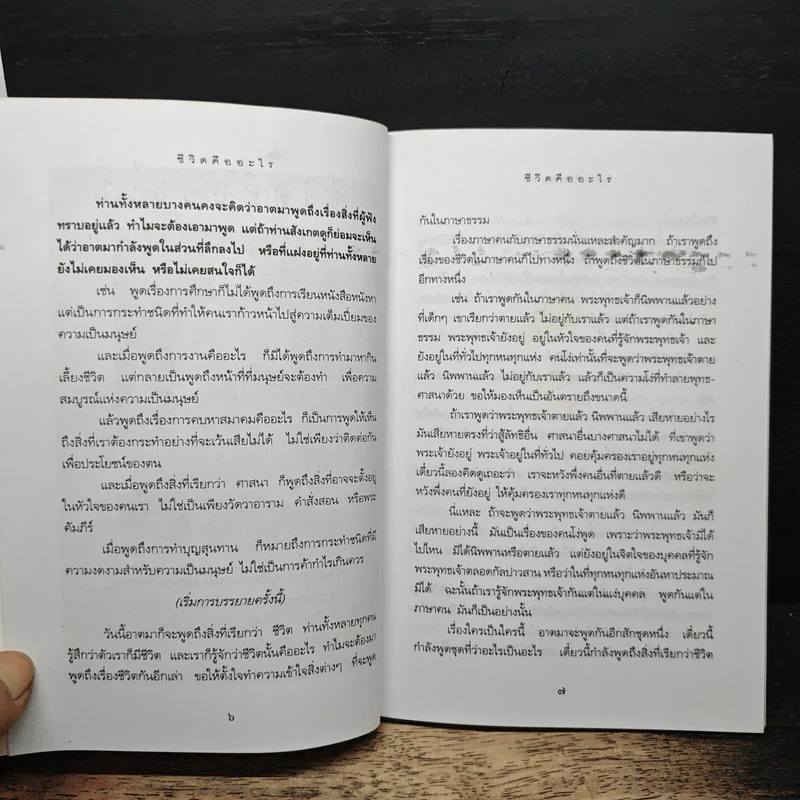 ชีวิตคืออะไร
ท่านทั้งหลายบางคนคงจะคิดว่าอาตมาพูดถึงเรื่องสิ่งที่ผู้ฟัง
ทราบอยู่แล้ว ทำไมจะต้องเอามาพูด แต่ถ้าท่านสังเกตดูก็ย่อมจะเห็น
ได้ว่าอาตมากำลังพูดในส่วนที่ลึกลงไป หรือที่แฝงอยู่ที่ท่านทั้งหลาย
ยังไม่เคยมองเห็น หรือไม่เคยสนใจก็ได้
เช่น พูดเรื่องการศึกษาก็ไม่ได้พูดถึงการเรียนหนังสือหนังหา
แต่เป็นการกระทำชนิดที่ทำให้คนเราก้าวหน้าไปสู่ความเต็มเปี่ยมของ
ความเป็นมนุษย์
และเมื่อพูดถึงการงานคืออะไร ก็มิได้พูดถึงการทำมาหากิน
เลี้ยงชีวิต แต่กลายเป็นพูดถึงหน้าที่ที่มนุษย์จะต้องทำ เพื่อความ
สมบูรณ์แห่งความเป็นมนุษย์
แล้วพูดถึงเรื่องการคบหาสมาคมคืออะไร ก็เป็นการพูดให้เห็น
ถึงสิ่งที่เราต้องกระทำอย่างที่จะเว้นเสียไม่ได้ ไม่ใช่เพียงว่าติดต่อกัน
เพื่อประโยชน์ของตน
และเมื่อพูดถึงสิ่งที่เรียกว่า ศาสนา ก็พูดถึงสิ่งที่อาจจะตั้งอยู่
ในหัวใจของคนเรา ไม่ใช่เป็นเพียงวัดวาอาราม คำสั่งสอน หรือพระ
คัมภีร์
เมื่อพูดถึงการทำบุญสุนทาน ก็หมายถึงการกระทำชนิดที่มี
ความงดงามสำหรับความเป็นมนุษย์ ไม่ใช่เป็นการค้ากำไรเกินควร
(เริ่มการบรรยายครั้งนี้)
วันนี้อาตมาก็จะพูดถึงสิ่งที่เรียกว่า ชีวิต ท่านทั้งหลายทุกคน
รู้สึกว่าตัวเราก็มีชีวิต และเราก็รู้จักว่าชีวิตนั้นคืออะไร ทำไมจะต้องมา
พูดถึงเรื่องชีวิตกันอีกเล่า ขอให้ตั้งใจทำความเข้าใจสิ่งต่างๆ ที่จะพูด
๖
ชีวิตคืออะไร
กันในภาษาธรรม
เรื่องภาษาคนกับภาษาธรรมนั่นแหละสำคัญมาก ถ้าเราพูดถึง
เรื่องของชีวิตในภาษาคนก็ไปทางหนึ่ง ถ้าพูดถึงชีวิตในภาษาธรรมก็ไป
อีกทางหนึ่ง
เช่น ถ้าเราพูดกันในภาษาคน พระพุทธเจ้าก็นิพพานแล้วอย่าง
ที่เด็กๆ เขาเรียกว่าตายแล้ว ไม่อยู่กับเราแล้ว แต่ถ้าเราพูดกันในภาษา
ธรรม พระพุทธเจ้ายังอยู่ อยู่ในหัวใจของคนที่รู้จักพระพุทธเจ้า และ
ยังอยู่ในที่ทั่วไปทุกหนทุกแห่ง คนโง่เท่านั้นที่จะพูดว่าพระพุทธเจ้าตาย
แล้ว นิพพานแล้ว ไม่อยู่กับเราแล้ว แล้วก็เป็นความโง่ที่ทำลายพุทธ-
ศาสนาด้วย ขอให้มองเห็นเป็นอันตรายถึงขนาดนี้
ถ้าเราพูดว่าพระพุทธเจ้าตายแล้ว นิพพานแล้ว เสียหายอย่างไร
มันเสียหายตรงที่ว่าสู้ลัทธิอื่น ศาสนาอื่นบางศาสนาไม่ได้ ที่เขาพูดว่า
พระเจ้ายังอยู่ พระเจ้าอยู่ในที่ทั่วไป คอยคุ้มครองเราอยู่ทุกหนทุกแห่ง
เดี๋ยวนี้ลองคิดดูเถอะว่า เราจะหวังพึ่งคนอื่นที่ตายแล้วดี หรือว่าจะ
หวังพึ่งคนที่ยังอยู่ ให้คุ้มครองเราทุกหนทุกแห่งดี
นี่แหละ ถ้าจะพูดว่าพระพุทธเจ้าตายแล้ว นิพพานแล้ว มันก็
เสียหายอย่างนี้ มันเป็นเรื่องของคนโง่พูด เพราะว่าพระพุทธเจ้ามิได้
ไปไหน มิได้นิพพานหรือตายแล้ว แต่ยังอยู่ในจิตใจของบุคคลที่รู้จัก
พระพุทธเจ้าตลอดกัลปาวสาน หรือว่าในที่ทุกหนทุกแห่งอันหาประมาณ
มิได้ ฉะนั้นถ้าเรารู้จักพระพุทธเจ้ากันแต่ในแง่บุคคล พูดกันแต่ใน
ภาษาคน มันก็เป็นอย่างนั้น
เรื่องใครเป็นใครนี้ อาตมาจะพูดกันอีกสักชุดหนึ่ง เดี๋ยวนี้
กำลังพูดชุดที่ว่าอะไรเป็นอะไร เดี๋ยวนี้กำลังพูดถึงสิ่งที่เรียกว่าชีวิต
๗